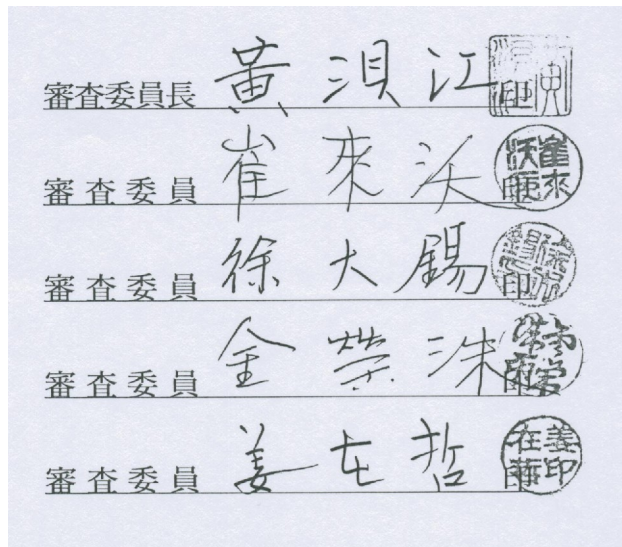 審査委員長 黃 浿 江 印
審査委員 崔 來 沃 印
審査委員 徐 大 錫 印
審査委員 金 榮 洙 印
審査委員 姜 在 哲 印